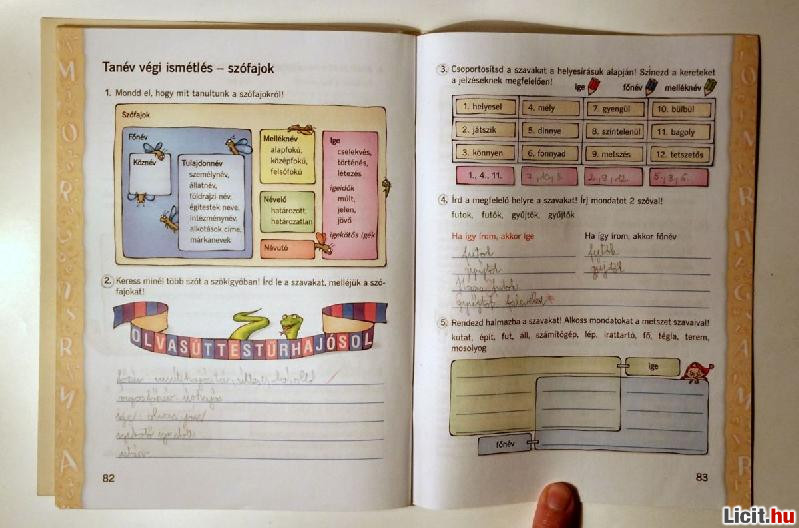 Tanév végi ismétlés – szófajok
1. Mondd el, hogy mit tanultunk a szófajokról!
Szófajok
Főnév
Köznév
Tulajdonnév
személynév,
állatnév,
földrajzi név,
építestek neve,
intézménynév,
alkotások címe,
márkanevek
Melléknév
alapfokú,
középfokú,
felsőfokú
Névelő
határozott,
határozatlan
Névutó
Ige
cselekvés,
történés,
létezés
igeidők
múlt,
jelen,
jövő
igekötős igék
2. Keress minél több szót a szókígyóban! Írd le a szavakat, melléjük a szó-
fajokat!
OLVASÚTTESTŰRHAJÓSOL
82
3. Csoportosítsd a szavakat a helyesírásuk alapján! Színezd a kereteket
a jelzéseknek megfelelően!
ige főnév melléknév
1. helyesel 4. mély 7. gyengül 10. bülbül
2. játszik 5. dinnye 8. színtelenül 11. bagoly
3. könnyen 6. fonnyad 9. metszés 12. tetszetős
1., 4., 11.
4. Írd a megfelelő helyre a szavakat! Írj mondatot 2 szóval!
futok, futók, gyűjtők, gyűjtök
Ha így írom, akkor ige Ha így írom, akkor főnév
5. Rendezd halmazba a szavakat! Alkoss mondatokat a metszet szavaival!
kutat, épít, fut, áll, számítógép, lép, irattartó, fő, tégla, terem,
mosolyog
ige
főnév
83
Licit.hu